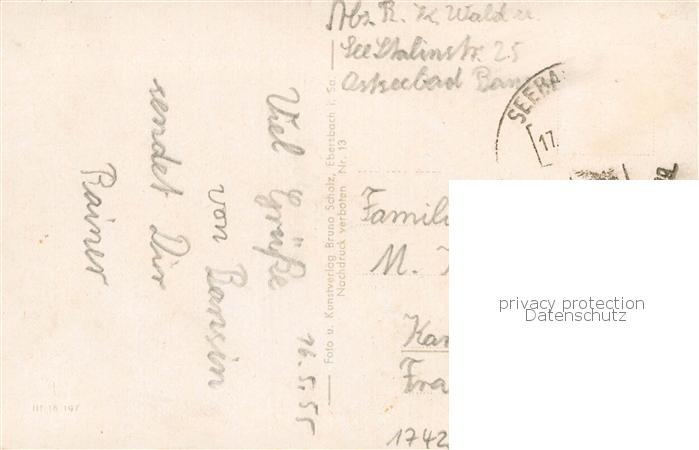 Abs. R. u. K. Wald
Stalinstr. 25
Ostseebad Ban
SEEBA
17.
16.5.55
Viel Grüße
von Bansin
sendet Dir
Rainer
Foto u. Kunstverlag Bruno Scholz, Ebersbach i. Sa.
Nachdruck verboten Nr. 13
Famili
M.
Kar
Fra
1742
III 18 197
privacy protection
Datenschutz